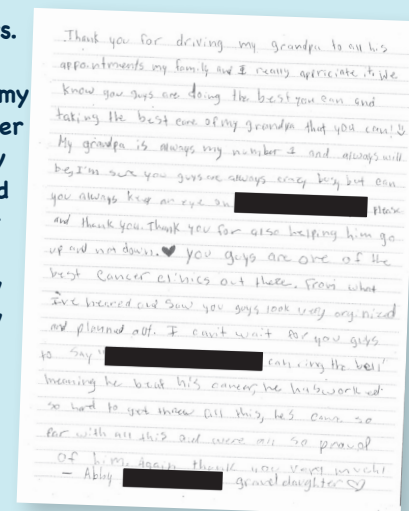 s.
my
er
y
d
Thank you for driving my grandpa to all his
appointments my family and I really appriciate it. We
know you guys are doing the best you can and
taking the best care of my grandpa that you can! :)
My grandpa is always my number 1 and always will
be, I'm sure you guys are always crazy busy but can
you always keep an eye on please
and thank you. Thank you for also helping him go
up and not down. ♥ you guys are one of the
best cancer clinics out there. From what
I've heared and saw you guys look very orginized
and planned out. I can't wait for you guys
to say " can ring the bell"
meaning he beat his cancer, he has worked
so hard to get threw all this, he's come so
far with all this and were all so proud
of him. Again thank you very much!
- Abby granddaughter ♡